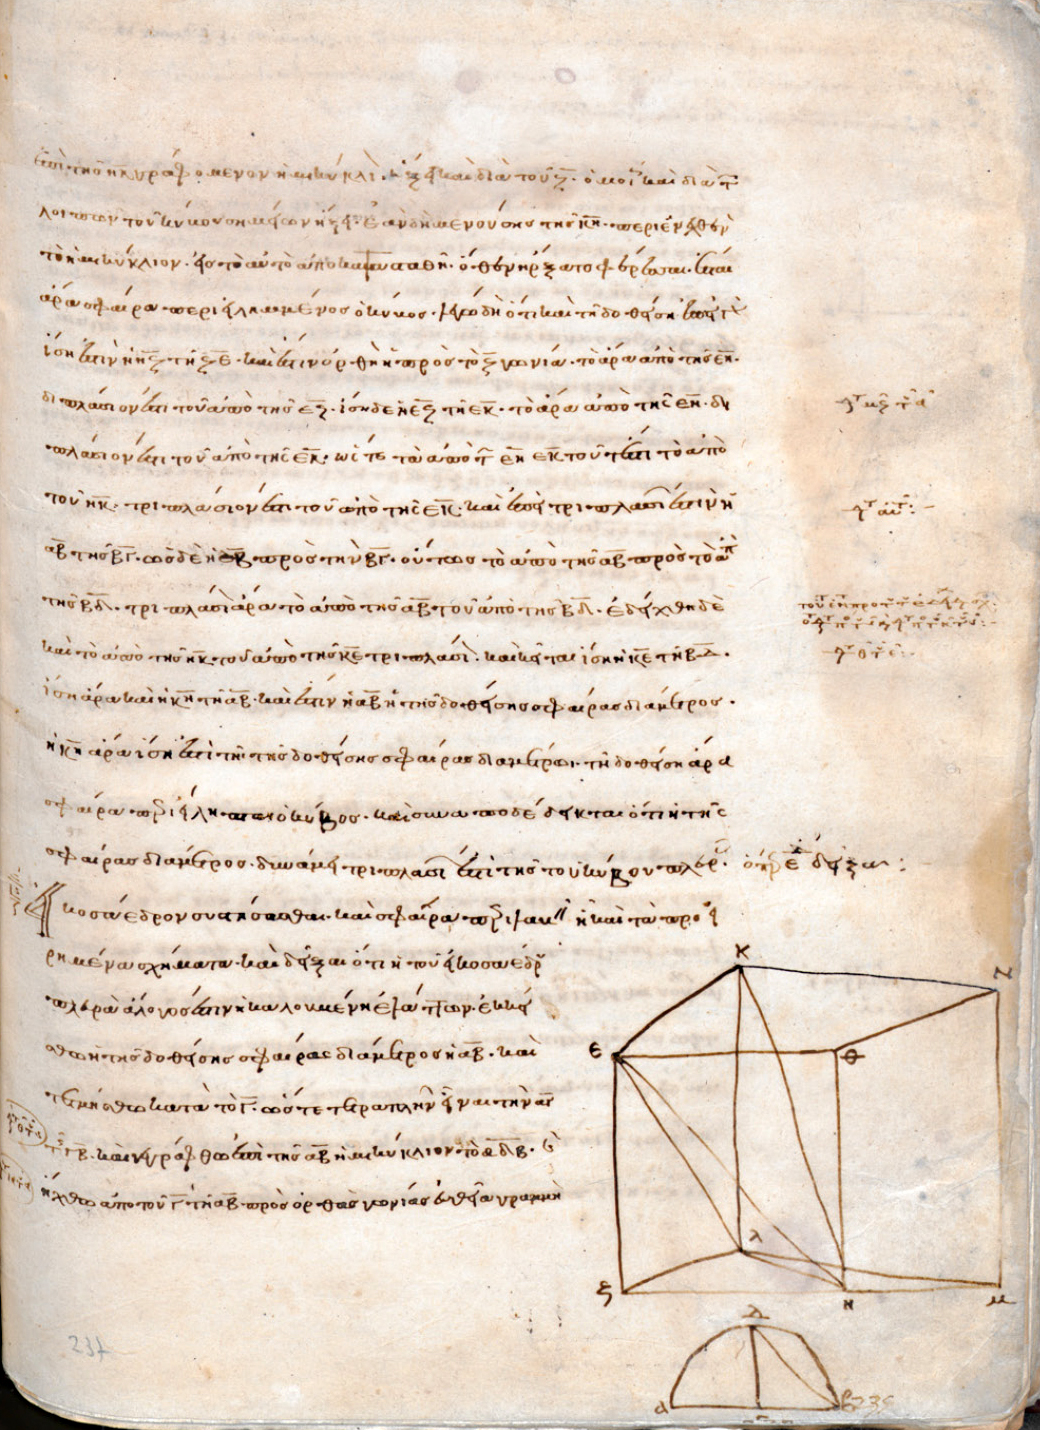 ἐπὶ τῆς ηκ γραφόμενον ἡμικύκλι. ἥξει καὶ διὰ τοῦ ζ. ὁμοί καὶ διὰ τ
λοιπῶν τοῦ κύβου σημείων ἥξει. ἐὰν δὴ μενούσης τῆς κη. περιενεχθὲν
τὸ ἡμικύκλιον. εἰς τὸ αὐτὸ ἀποκατασταθῆ. ὅθεν ἤρξατο φέρεσθαι. ἔσται
ἄρα σφαίρα περιειλημμένος ὁ κύβος. λέγω δὴ ὅτι καὶ τῆ δοθείση ἐπεὶ γὰρ
ἴση ἐστὶν ἡ ηζ τῆ ζε. καὶ ἐστιν ὀρθὴ ἡ πρὸς τὸ ζ γωνία. τὸ ἄρα ἀπὸ τῆς εη.
διπλάσιον ἐστι τοῦ ἀπὸ τῆς εζ. ἴση δὲ ἡ εζ τῆ εκ. τὸ ἄρα ἀπὸ τῆς εη. δι
πλάσιον ἐστι τοῦ ἀπὸ τῆς εκ. ὥστε τὰ ἀπὸ τ εη εκ τουτέστι τὸ ἀπὸ
τοῦ ηκ. τριπλάσιον ἐστι τοῦ ἀπὸ τῆς εκ. καὶ ἐπεὶ τριπλασί ἐστὶν ἡ
αβ τῆς βγ. ὡς δὲ ἡ αβ πρὸς τὴν βγ. οὕτως τὸ ἀπὸ τῆς αβ πρὸς τὸ ἀπ
τῆς βδ. τριπλάσι ἄρα τὸ ἀπὸ τῆς αβ τοῦ ἀπὸ τῆς βδ. ἐδείχθη δὲ
καὶ τὸ ἀπὸ τῆς ηκ. τοῦ ἀπὸ τῆς κε τριπλάσι. καὶ κεῖται ἴση ἡ κε τῆ βδ.
ἴση ἄρα καὶ ἡ κη τῆ αβ. καὶ ἐστιν ἡ αβ ἡ τῆς δοθείσης σφαίρας διάμετρος.
ἡ κη ἄρα ἴση ἐστὶ τῆ τῆς δοθείσης σφαίρας διαμέτρωι. τῆ δοθείση ἄρα
σφαίρα περιείληπται ὁ κύβος. καὶ συναποδέδεικται ὅτι ἡ τῆς
σφαίρας διάμετρος. δυνάμει τριπλασί ἐστὶ τῆς τοῦ κύβου πλευρ. ὅπερ ἔδει δεῖξαι:
εἰκοσάεδρον συστήσασθαι. καὶ σφαίρα περιλαβεῖν ἧ καὶ τὰ προει
ρημένα σχήματα. καὶ δεῖξαι ὅτι ἡ τοῦ εἰκοσαέδρ
πλευρὰ ἄλογος ἐστὶν ἡ καλουμένη ἐλάττων. ἐκκεί
σθω ἡ τῆς δοθείσης σφαίρας διάμετρος ἡ αβ. καὶ
τετμήσθω κατὰ τὸ γ. ὥστε τετραπλῆν εἶναι τὴν αγ
τῆς γβ. καὶ γεγράφθω ἐπὶ τῆς αβ ἡμικύκλιον τὸ αδβ. καὶ
ἤχθω ἀπὸ τοῦ γ τῆ αβ πρὸς ὀρθὰς γωνίας εὐθεῖα γραμμὴ
κ
ζ
ε
θ
λ
ξ
η
μ
δ
α
γ
β
235
237